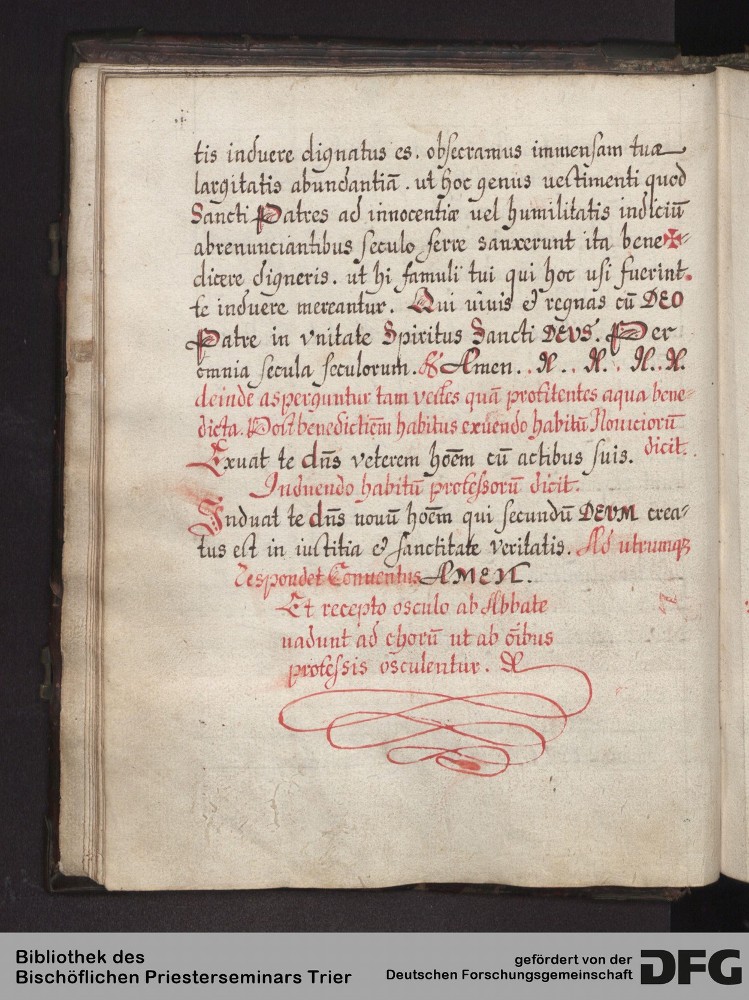 tis induere dignatus es. obsecramus immensam tuæ
largitatis abundantiā. ut hoc genus uestimenti quod
Sancti Patres ad innocentiæ uel humilitatis indiciū
abrenunciantibus seculo ferre sanxerunt ita bene✠-
dicere digneris. ut hi famuli tui qui hoc usi fuerint.
te induere mereantur. Qui uiuis & regnas cū DEO
Patre in vnitate Spiritus Sancti DEVS. Per
omnia secula seculorum. ℟ Amen. . N. . N. . N. . N.
deinde asperguntur tam vestes quā profitentes aqua bene-
dicta. Post benedictiēm habitus exuendo habitū Nouiciorū
dicit.
Exuat te dn̄s veterem hoēm cū actibus suis.
Induendo habitū professorū dicit.
Induat te dn̄s nouū hoēm qui secundū DEVM crea-
tus est in iustitia & sanctitate veritatis. Ad utrumqꝫ
respondet Conuentus AMEN.
Et recepto osculo ab Abbate
uadunt ad chorū ut ab oībus
professis osculentur.
Bibliothek des
Bischöflichen Priesterseminars Trier
gefördert von der
Deutschen Forschungsgemeinschaft
DFG